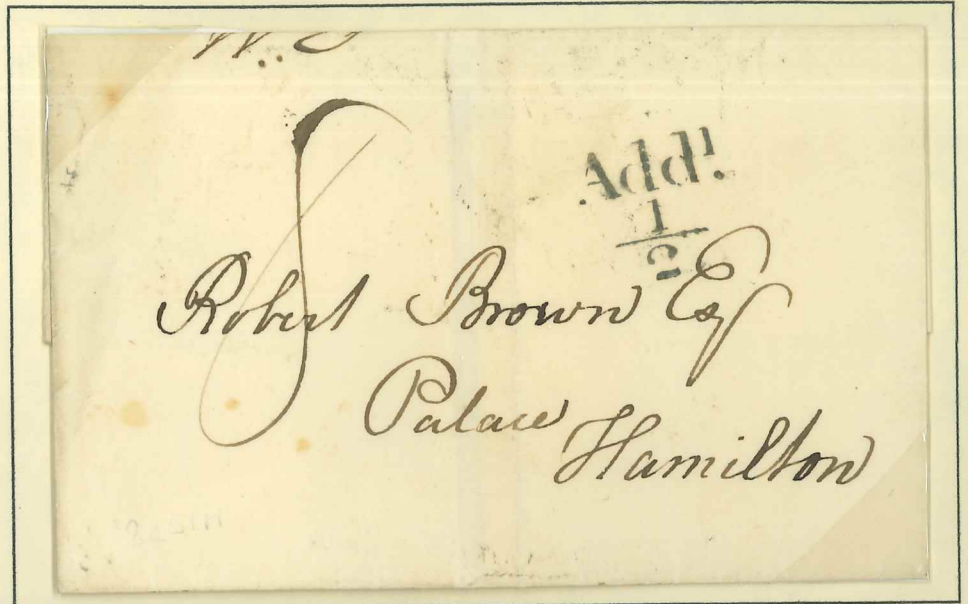 8
Addl.
1
2
Robert Brown Esq
Palace
Hamilton